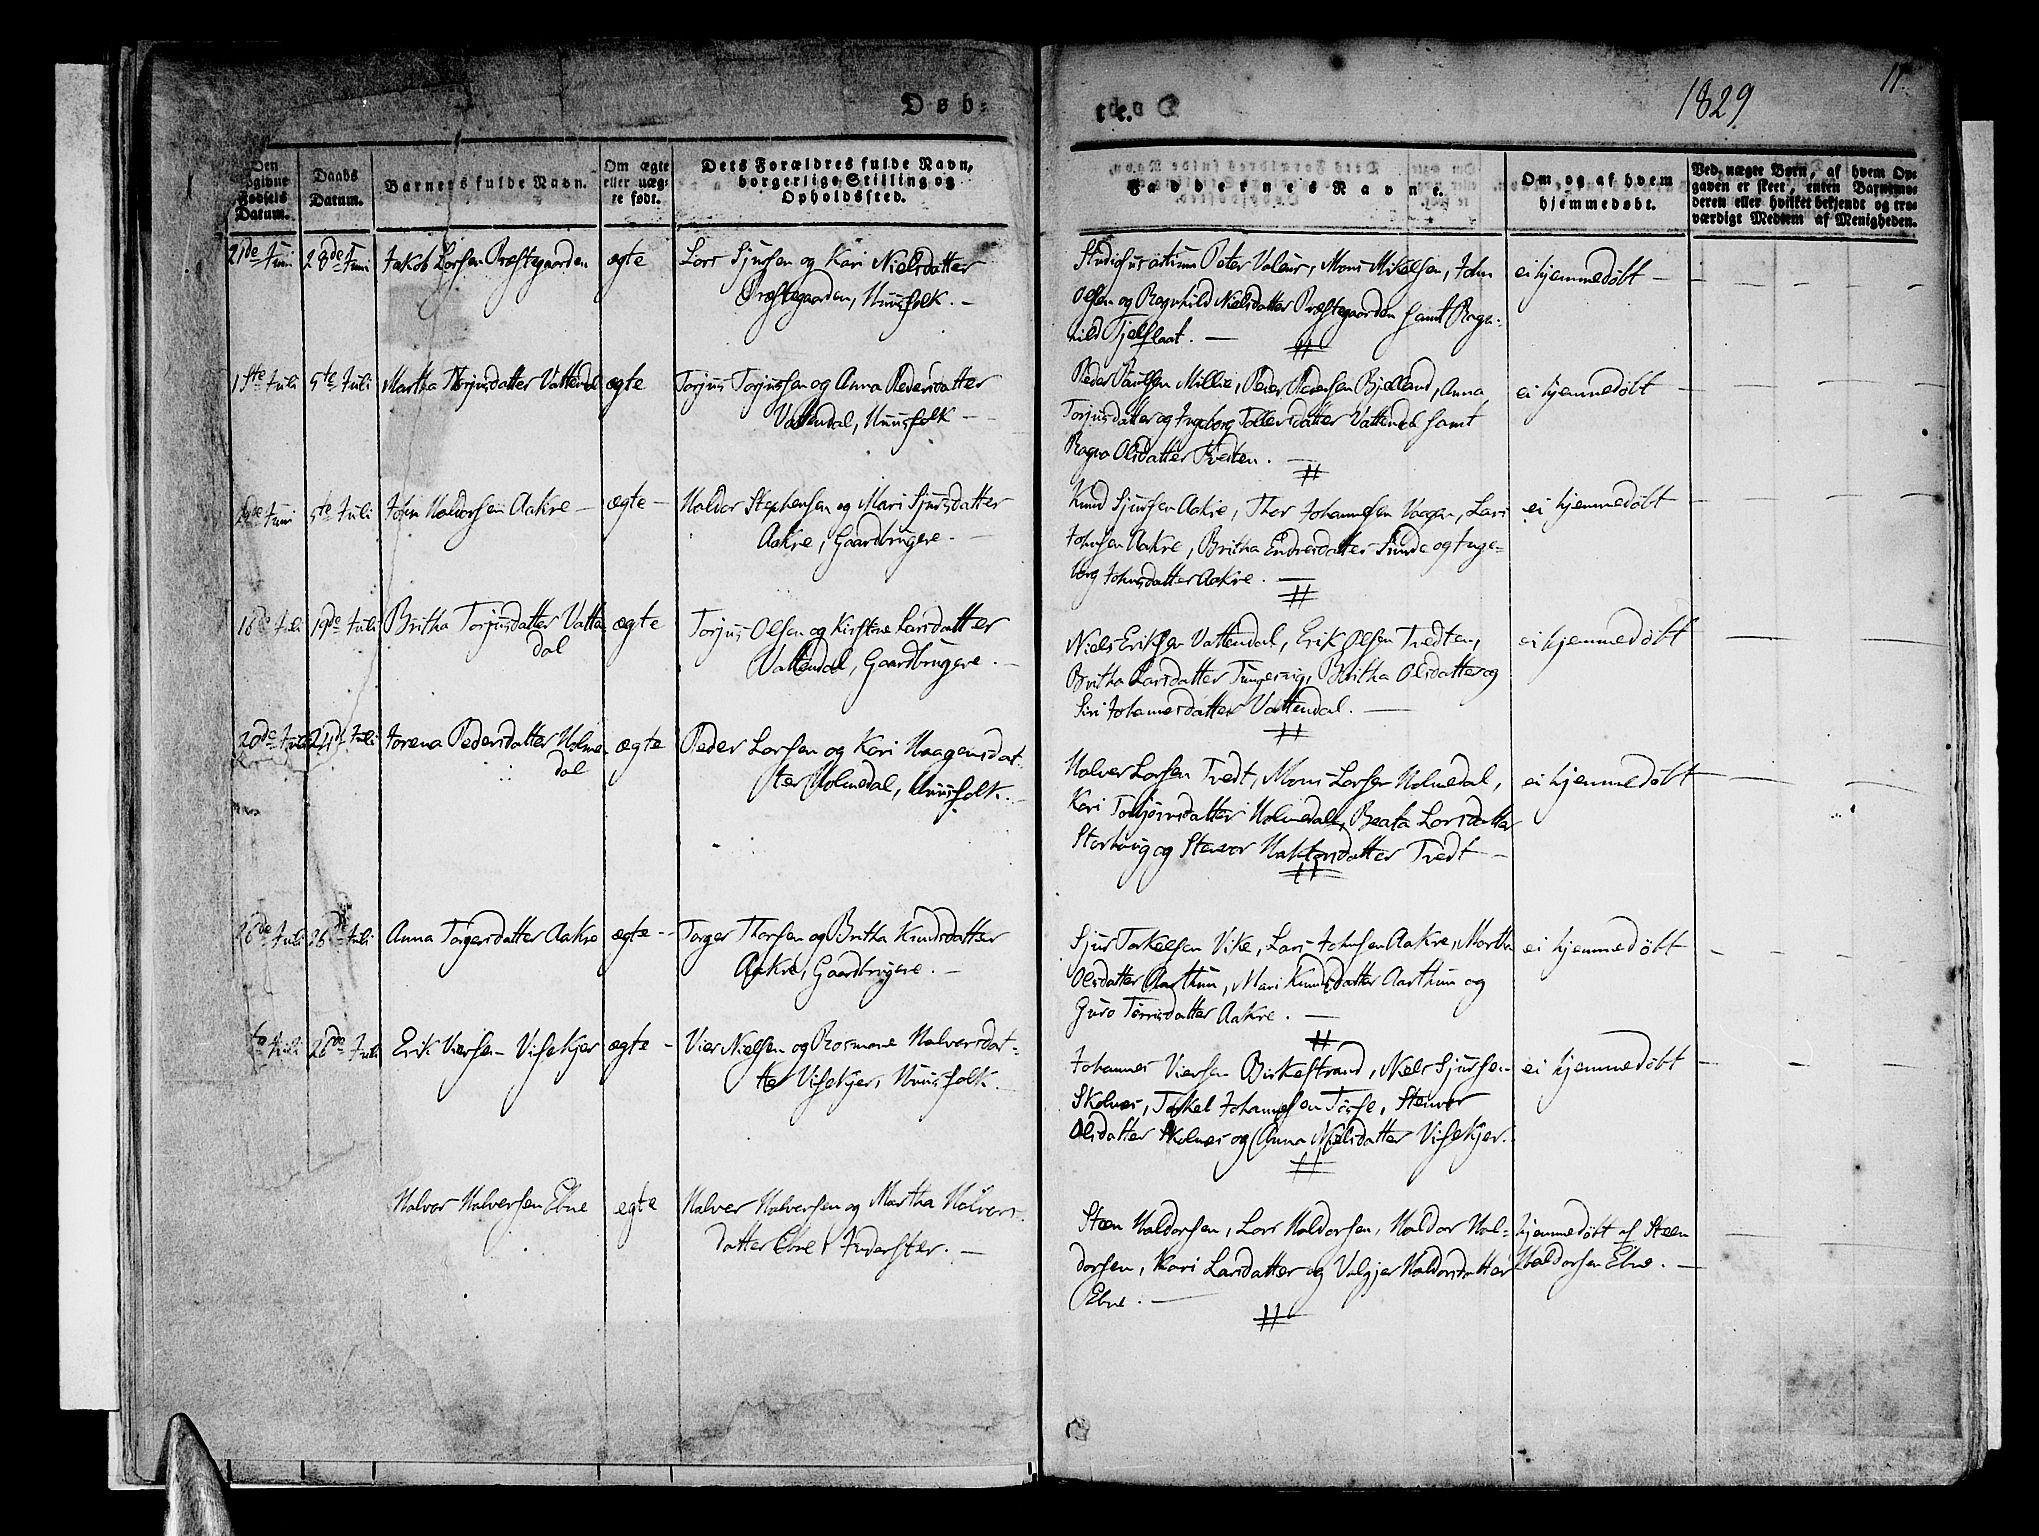 Døb-
te.
1829
11
Den
opgivne
Fødsels
Datum.
Daabs
Datum.
Barnets fulde Navn.
Om ægte
eller uæg-
te født.
Dets Forældres fulde Navn,
borgerlige Stilling og
Opholdssted.
Faddernes Navne.
Om og af hvem
hjemmedøbt.
Ved uægte Børn, af hvem Op-
gaven er skeet, enten Barnemo-
deren eller hvilket bekjendt og tro-
værdigt Medlem af Menigheden.
21de Juni 28de Juni Jakob Larsen Præstegaarden ægte
Lars Sjursen og Kari Nielsdatter
Præstegaarden, Huusfolk. -
Peter Valeur, Mons Mikelsen, John
Olsen og Ragnhild Nielsdatter Præstegaarden samt Ragn-
hild Tjelflaat. -
ei hjemmedøbt -
1ste Juli 5te Juli Martha Torjusdatter Vattendal ægte
Torjus Torjussen og Anna Pedersdatter
Vattendal, Huusfolk -
Peder Paulsen Millie, Peder Pedersen Bjelland, Anna
Torjusdatter og Ingeborg Tollevsdatter Vattendal samt
Ragna Olsdatter Tveiten. -
ei hjemmedøbt
Juni 5te Juli John Haldorsen Aakre - ægte -
Haldor Stephensen og Mari Sjursdatter
Aakre, Gaardbrugere. -
Knud Sjursen Aakre, Thor Johannesen Vaagen, Lars
Johnsen Aakre, Britha Endresdatter Sunde og Inge-
borg Johnsdatter Aakre. -
ei hjemmedøbt
18de Juli 19de Juli Britha Torjusdatter Vatten
dal
ægte
Torjus Olsen og Kirstine Larsdatter
Vattendal, Gaardbrugere. -
Niels Eriksen Vattendal, Erik Olsen Tvedten,
Britha Larsdatter Tungesvig, Britha Olsdatter og
Siri Johannesdatter Vattendal. -
ei hjemmedøbt
20de Juli 24de Juli Torena Pedersdatter Holme
dal
ægte
Peder Larsen og Kari Haagensdat
ter Holmedal, Huusfolk. -
Halver Larsen Tvedt, Mons Larsen Holmedal,
Kari Torbjørnsdatter Holmedal, Beata Larsdatter
og Tvedt -
ei hjemmedøbt
26de Juli 26de Juli Anna Torgersdatter Aakre ægte -
Torger Thorsen og Britha Knudsdatter
Aakre, Gaardbrugere. -
Sjur Torkelsen Vike, Lars Johnsen Aakre, Martha
Olsdatter Aarthun, Mari Knudsdatter Aarthun og
Guro Tørrisdatter Aakre. -
ei hjemmedøbt
Juli 26de Juli Erik Viersen Visekjer ægte -
Vier Nielsen og Rosmone Halversdat-
ter Visekjer, Huusfolk. -
Johannes Viersen Birkestrand, Niels Sjursen
Skolnes, Torkel Johannesen Tøsse, Steinvor
Olsdatter Skolnes og Anna Nielsdatter Visekjer.
ei hjemmedøbt
Halvor Halversen Ebne egte
Halver Halversen og Martha Halvers-
datter Ebne, Inderster. -
Steen Haldorsen, Lars Haldorsen, Haldor Hal-
dorsen, Kari Larsdatter og Valgjer Haldorsdatter
Ebne. -
hjemmedøbt af Steen
Haldorsen Ebne. -